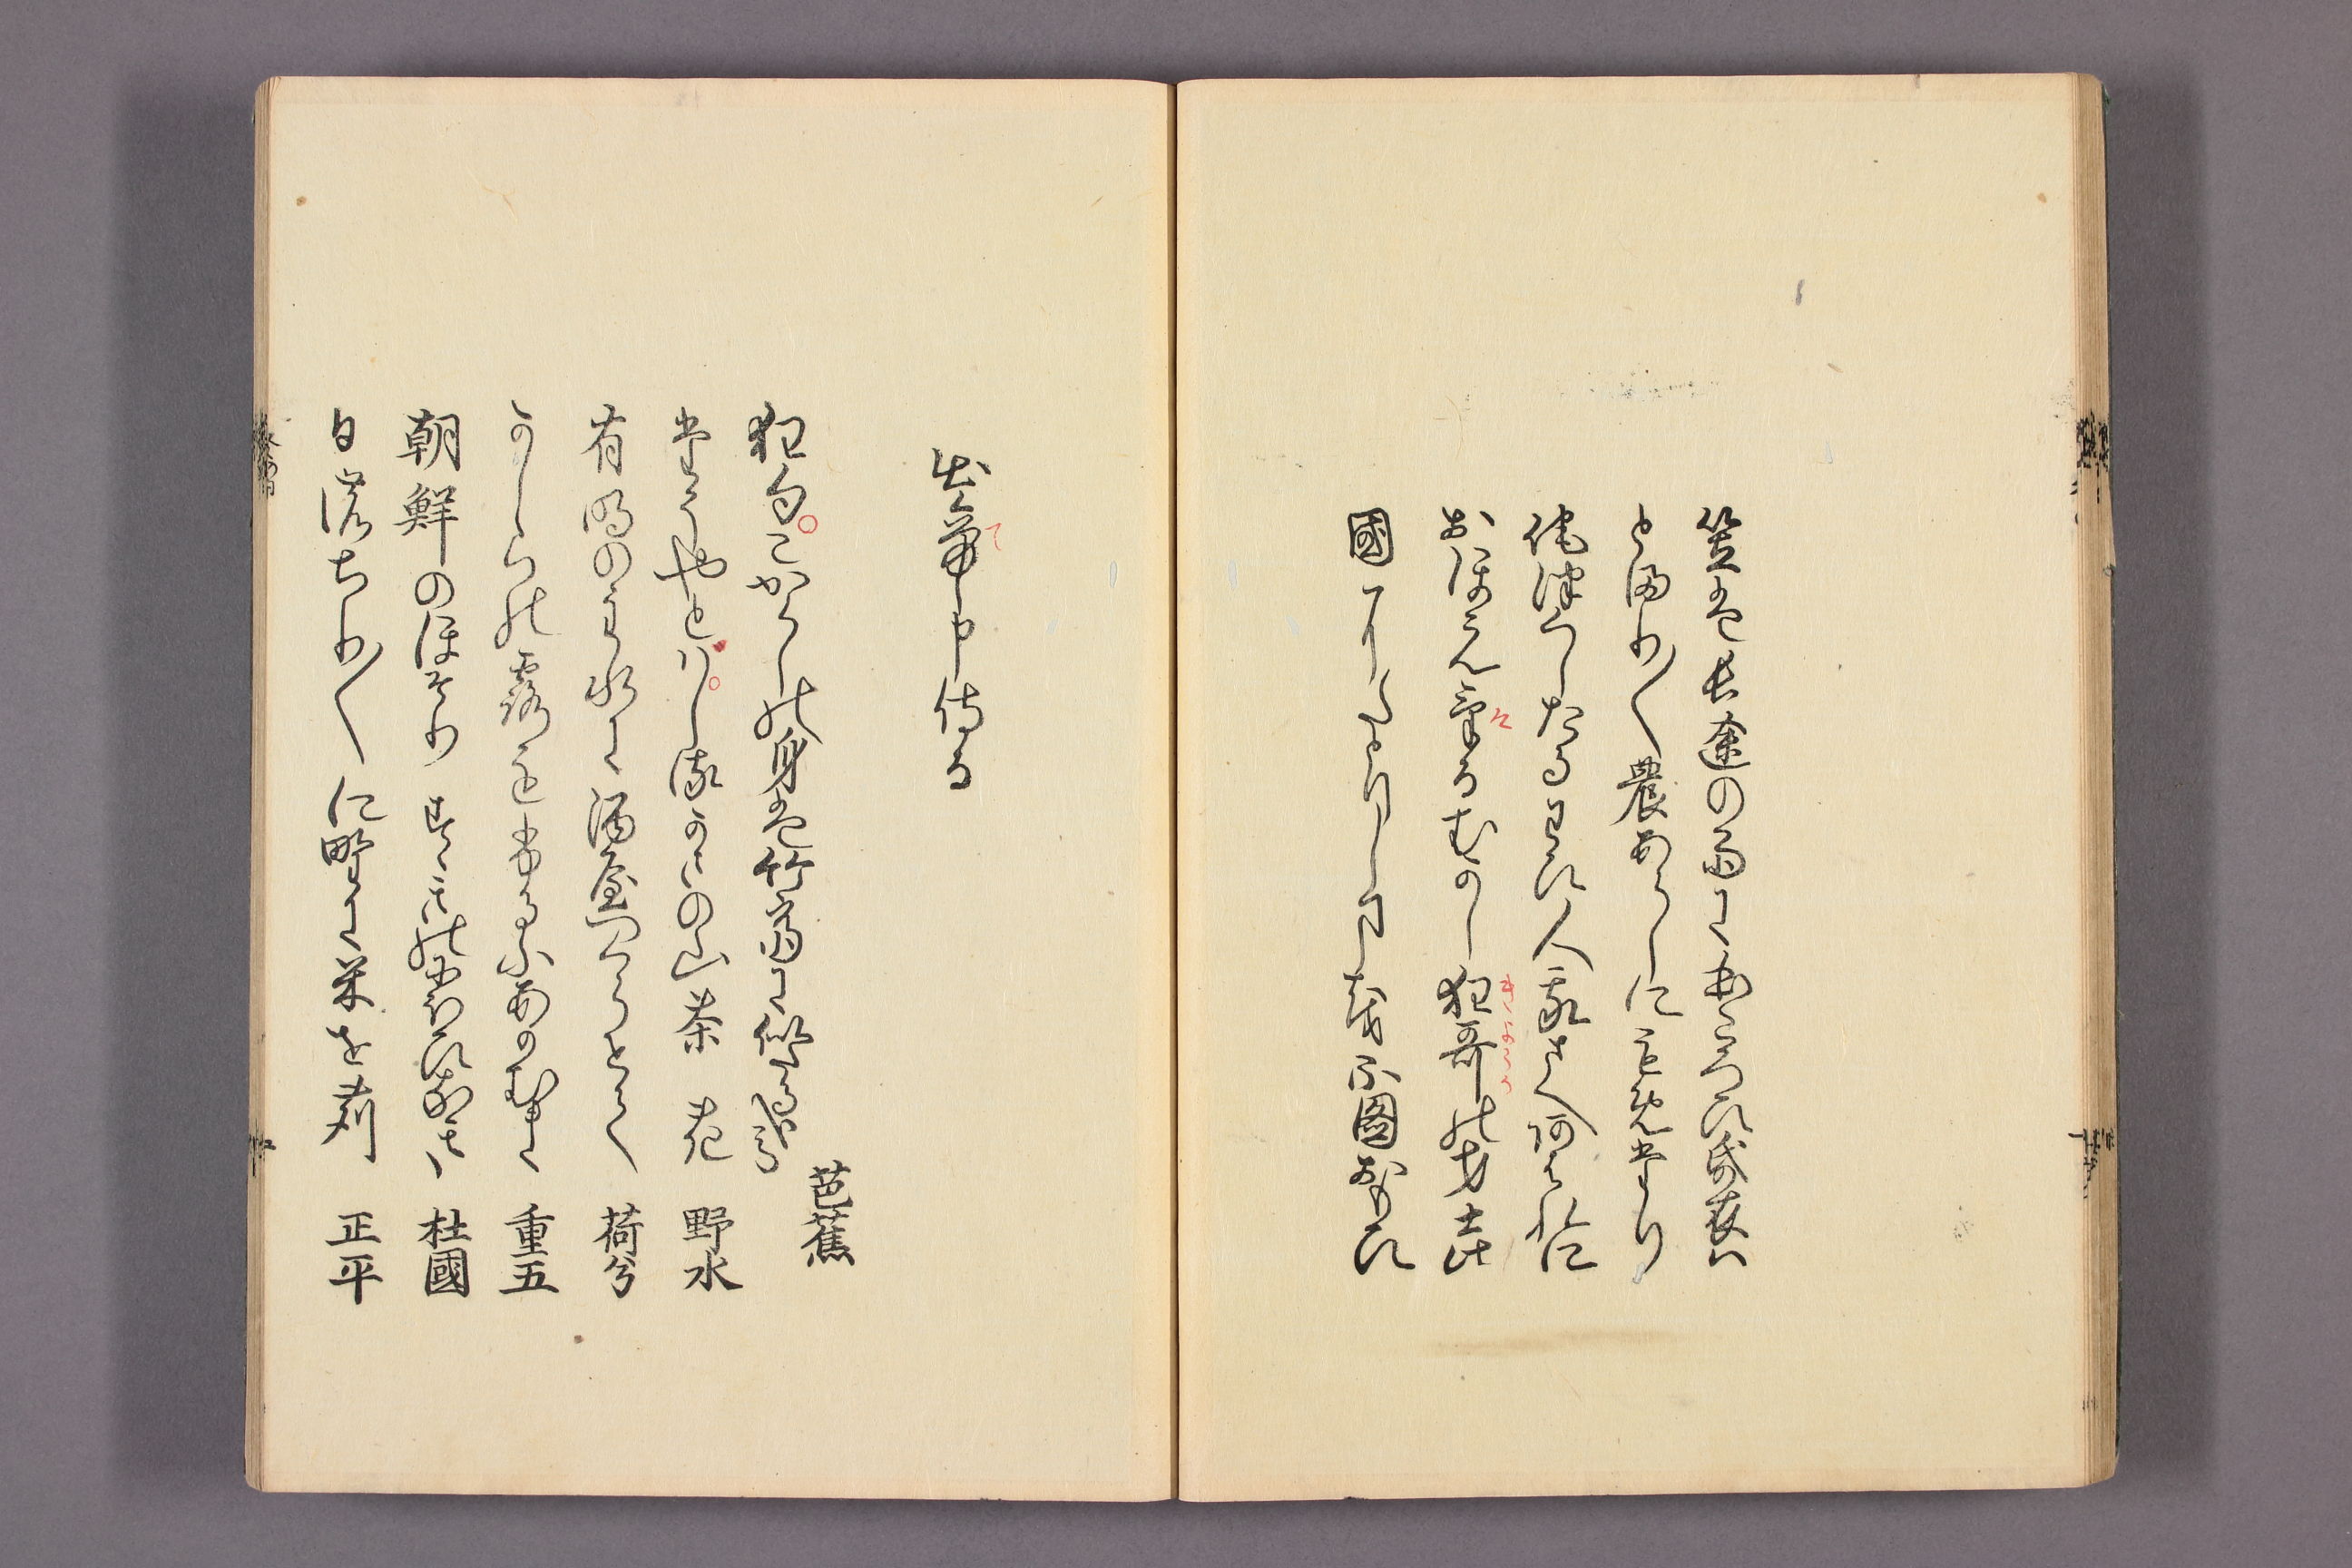 笠は長途の雨にほころひ帋衣は
とまり〱のあらしにもめたり
侘つくしたるわひ人我さへあはれに
おほえけるむかし狂哥の才士此
國にたとりし事を不圖おもひ
出て申侍る
狂句こからしの身は竹斎に似たる哉
芭蕉
たそやとはしる かさの山茶花 野水
有明の主水に酒屋つくらせて 荷兮
かしらの露をふるふあかむま 重五
朝鮮のほそりすゝきのにほひなき 杜國
日のちり〱に野に米を苅 正平